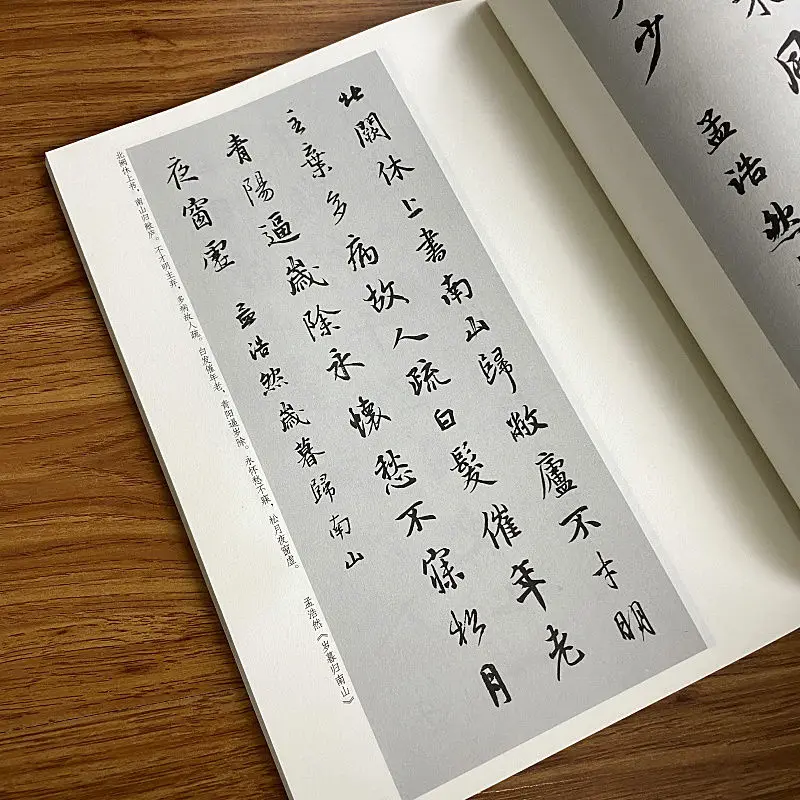 風
少 孟浩然
北闕休上書南山歸敝廬不才明
主棄多病故人疏白髮催年老
青陽逼歲除永懷愁不寐松月
夜窗虛 孟浩然歲暮歸南山
北阙休上书，南山归敝庐。不才明主弃，多病故人疏。白发催年老，青阳逼岁除。永怀愁不寐，松月夜窗虚。 孟浩然《岁暮归南山》